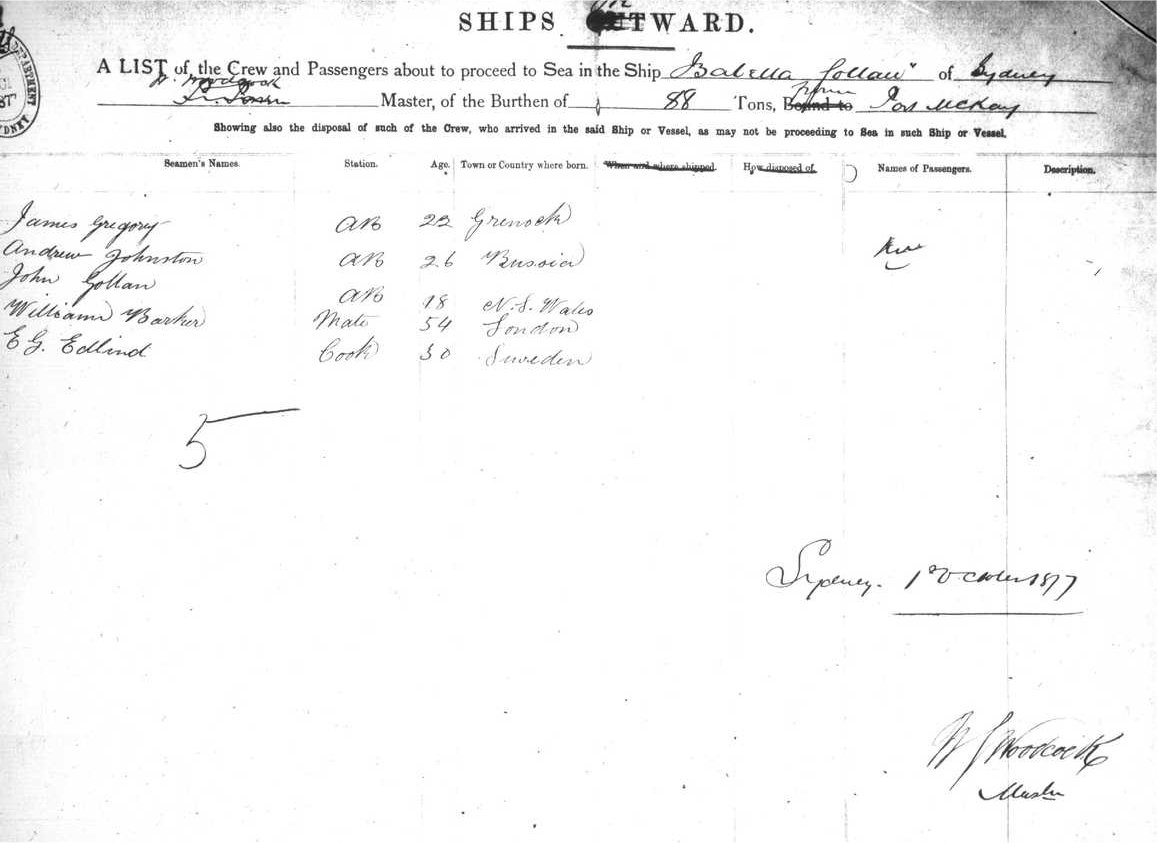 SHIPS INWARD.
A LIST of the Crew and Passengers about to proceed to Sea in the Ship "Isabella Gollan" of Sydney
W. Woodcock
Master, of the Burthen of 88 Tons, Bound to from Port McKay
Showing also the disposal of such of the Crew, who arrived in the said Ship or Vessel, as may not be proceeding to Sea in such Ship or Vessel.
Seamen's Names. Station. Age. Town or Country where born. When and where shipped. How disposed of. Names of Passengers. Description.
James Gregory AB 22 Grenock
Andrew Johnston AB 26 Russia
John Gollan AB 18 N. S. Wales
William Barker Mate 54 London
E G. Edlind Cook 30 Sweden
5
Sydney. 1 October 1877
W J Woodcock
Master